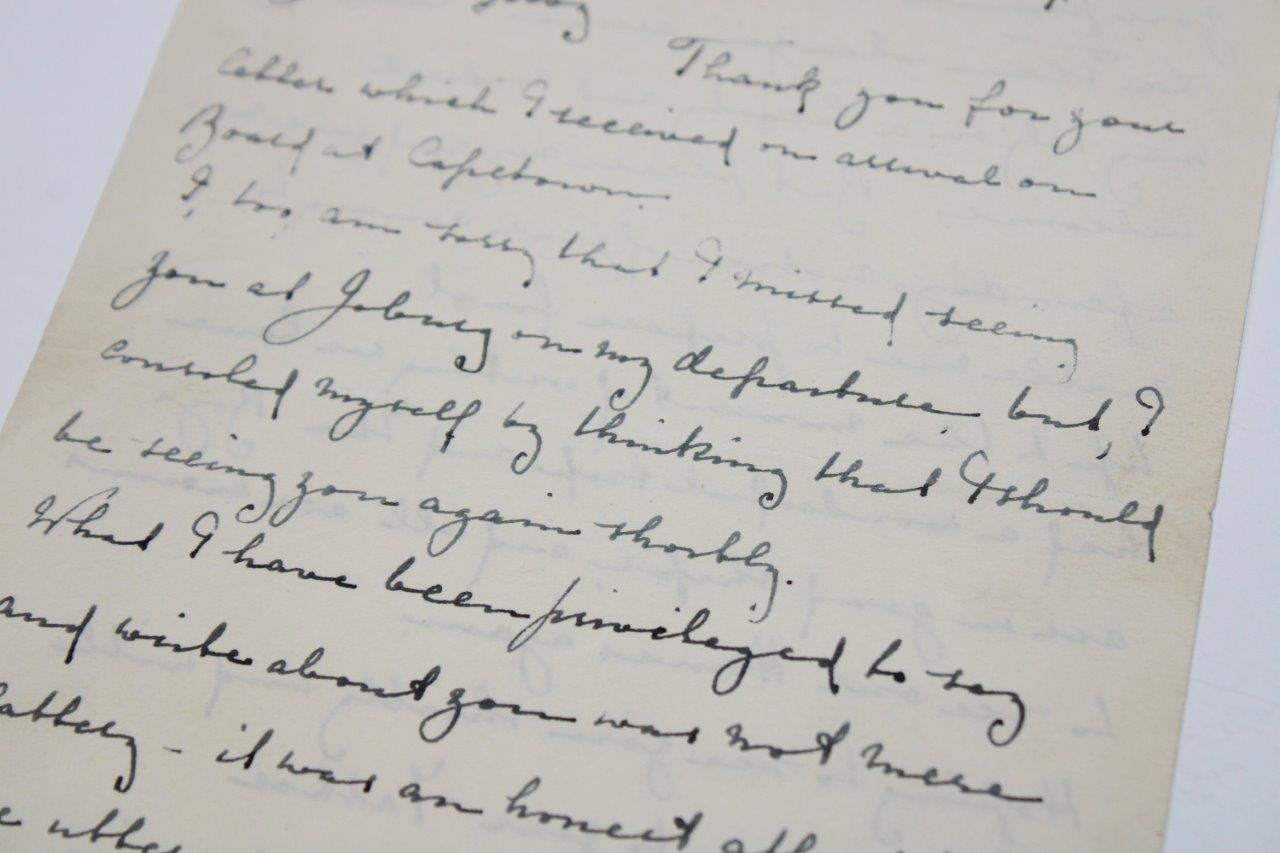 Thank you for your
letter which I received on arrival on
Board at Capetown.
I, too, am sorry that I missed seeing
you at Joburg on my departure, but, I
consoled myself by thinking that I should
be seeing you again shortly.
What I have been privileged to say
and write about you was not mere
flattery - it was an honest